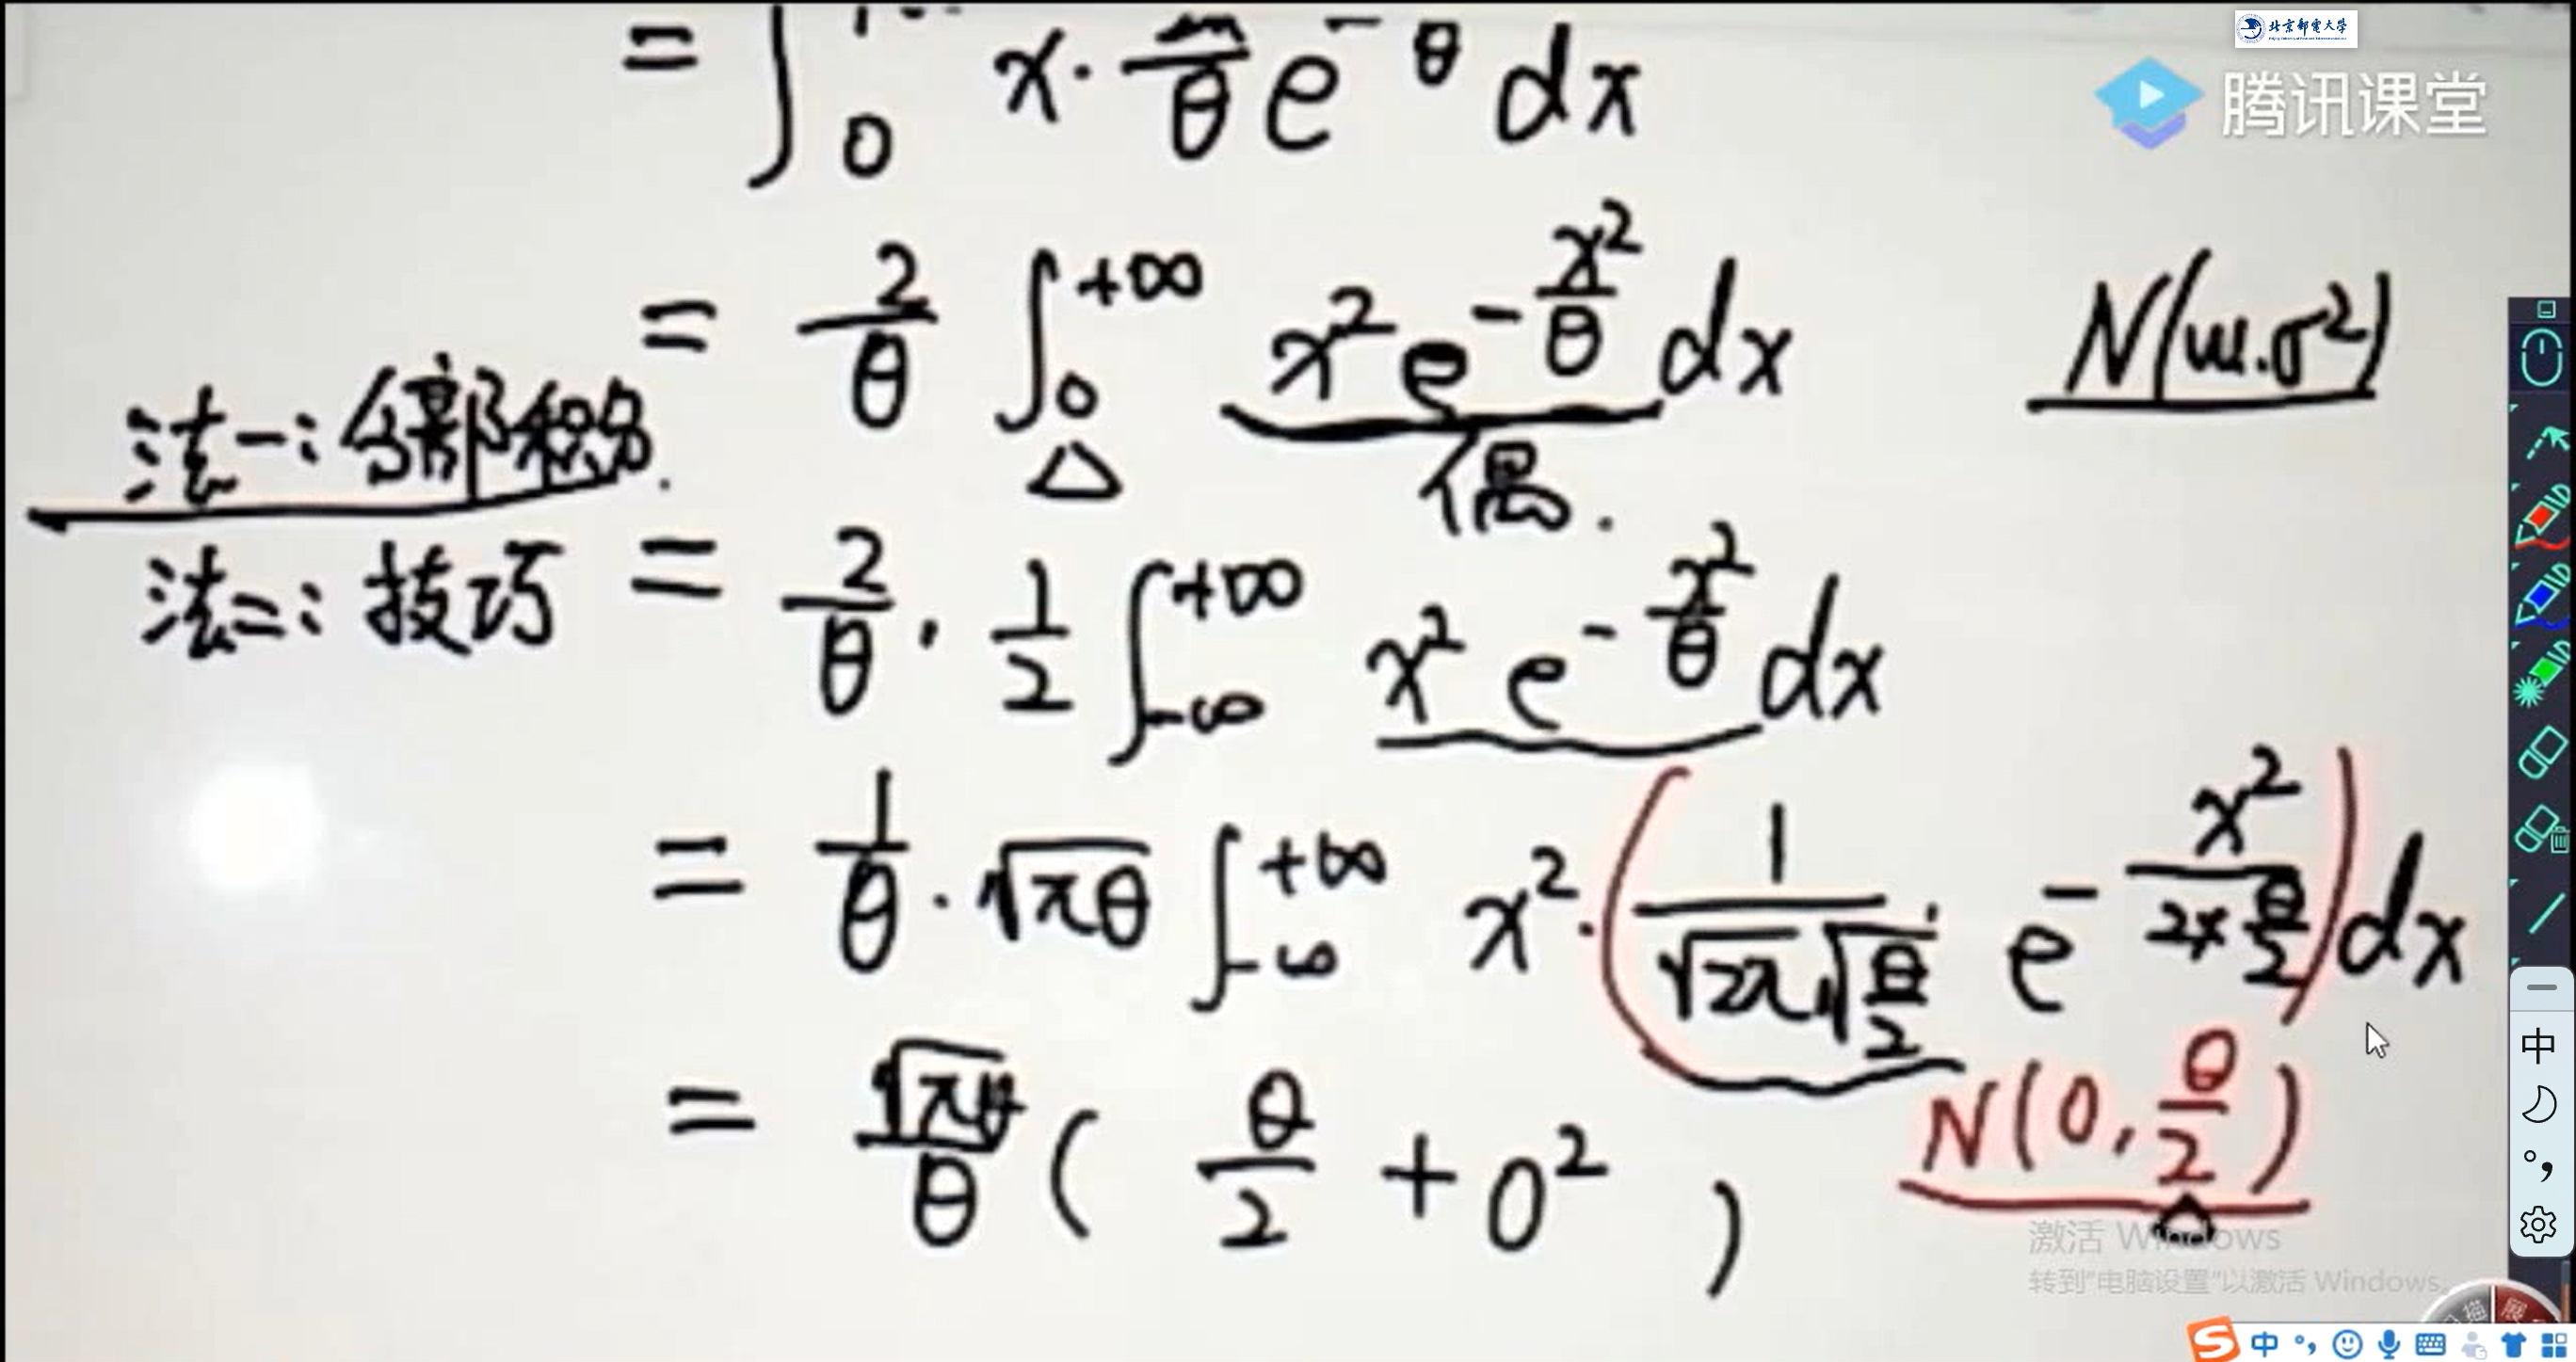 北京邮电大学
腾讯课堂
= ∫₀ x · /θ e^{- θ} dx
= 2/θ ∫₀^{+∞} x² e^{-x²/θ} dx
N(μ.σ²)
法一: 分部积分.
△
偶.
法二: 技巧 = 2/θ · 1/2 ∫_{-∞}^{+∞} x² e^{-x²/θ} dx
= 1/θ · √πθ ∫_{-∞}^{+∞} x² · (1/(√2π √(θ/2)) e^{-x²/(2×θ/2)}) dx
= √πθ/θ ( θ/2 + 0² )
N(0, θ/2)
激活 Windows
转到"电脑设置"以激活 Windows。
中
中